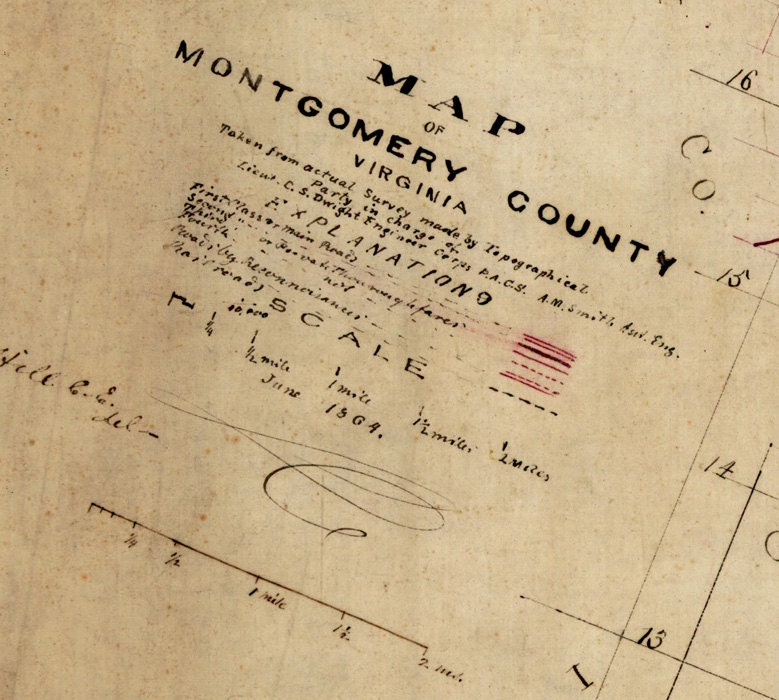 MAP
OF
MONTGOMERY COUNTY
VIRGINIA
Taken from actual Survey made by Topographical
Party in charge of
Lieut. C. S. Dwight Engineer Corps P.A.C.S. A.M. Smith Ast. Eng.
EXPLANATIONS
First Class or main Roads
Second " or Private thoroughfares
Third " not
Fourth "
Roads by Reconnoisance
Railroads
SCALE
1/40,000
1/4 1/2 mile 1 mile 1 1/2 miles 2 Miles
June 1864.
1/4 1/2 1 mile 1 1/2 2 mls.
CO.
16
15
14
13
1